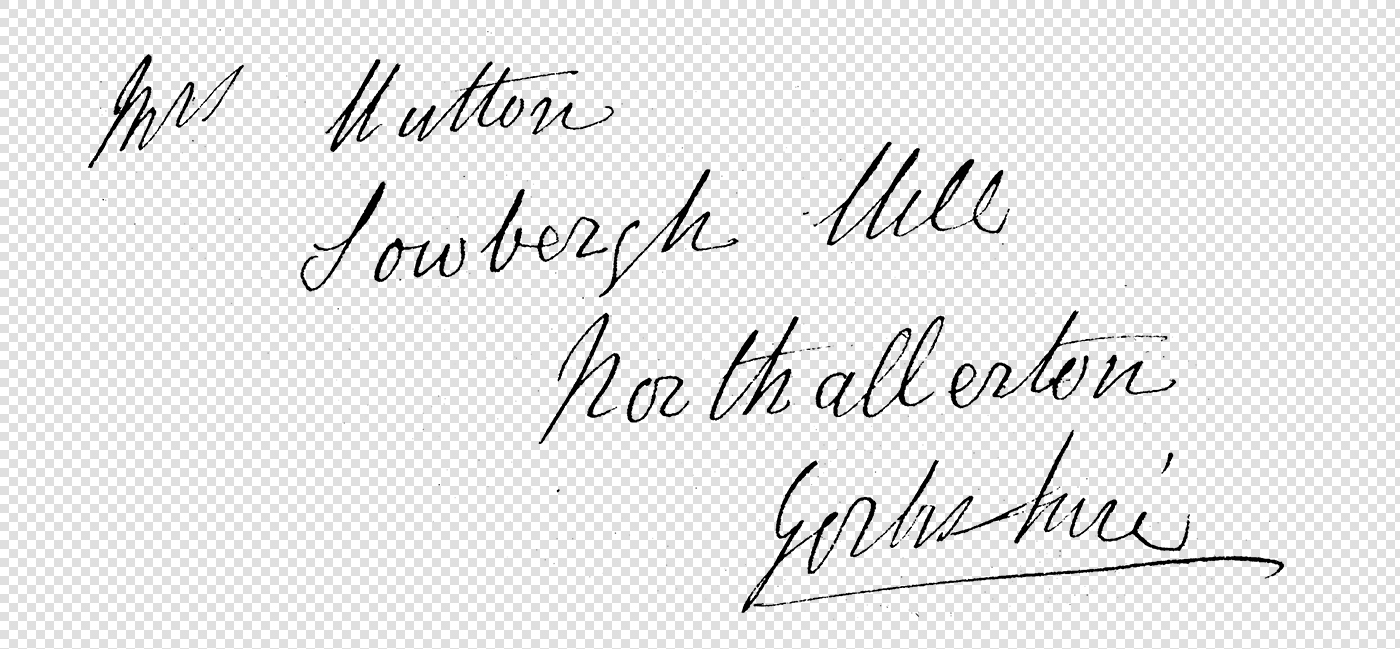 Mrs Hutton
Sowbergh Hill
Northallerton
Yorkshire